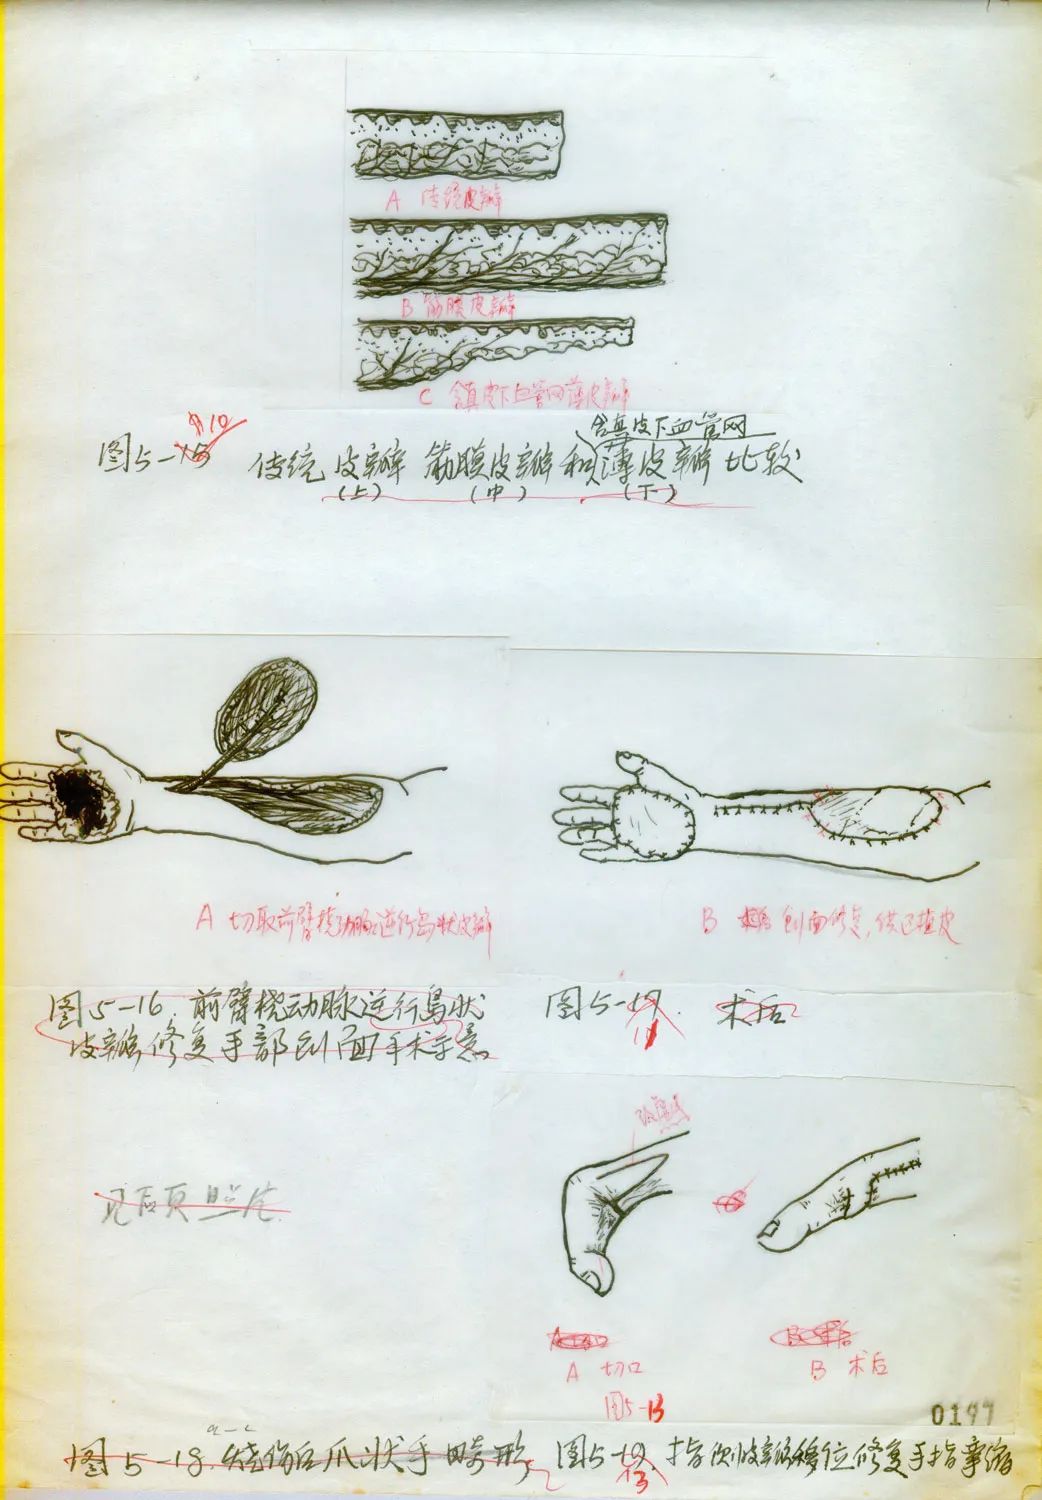 A 传统皮瓣
B 筋膜皮瓣
C 含真皮下血管网薄皮瓣
含真皮下血管网
图5-15 10 传统皮瓣 筋膜皮瓣和薄皮瓣比较
(上) (中) (下)
A 切取前臂桡动脉逆行岛状皮瓣
B 术后 创面修复,供区植皮
图5-16. 前臂桡动脉逆行岛状
皮瓣修复手部创面手术示意
图5-17. 术后
11
见后页照片
A 切口
B 术后
图5-13
0197
a-c
图5-18. 烧伤后爪状手畸形
图5-19. 指侧皮瓣移位修复手指挛缩
13